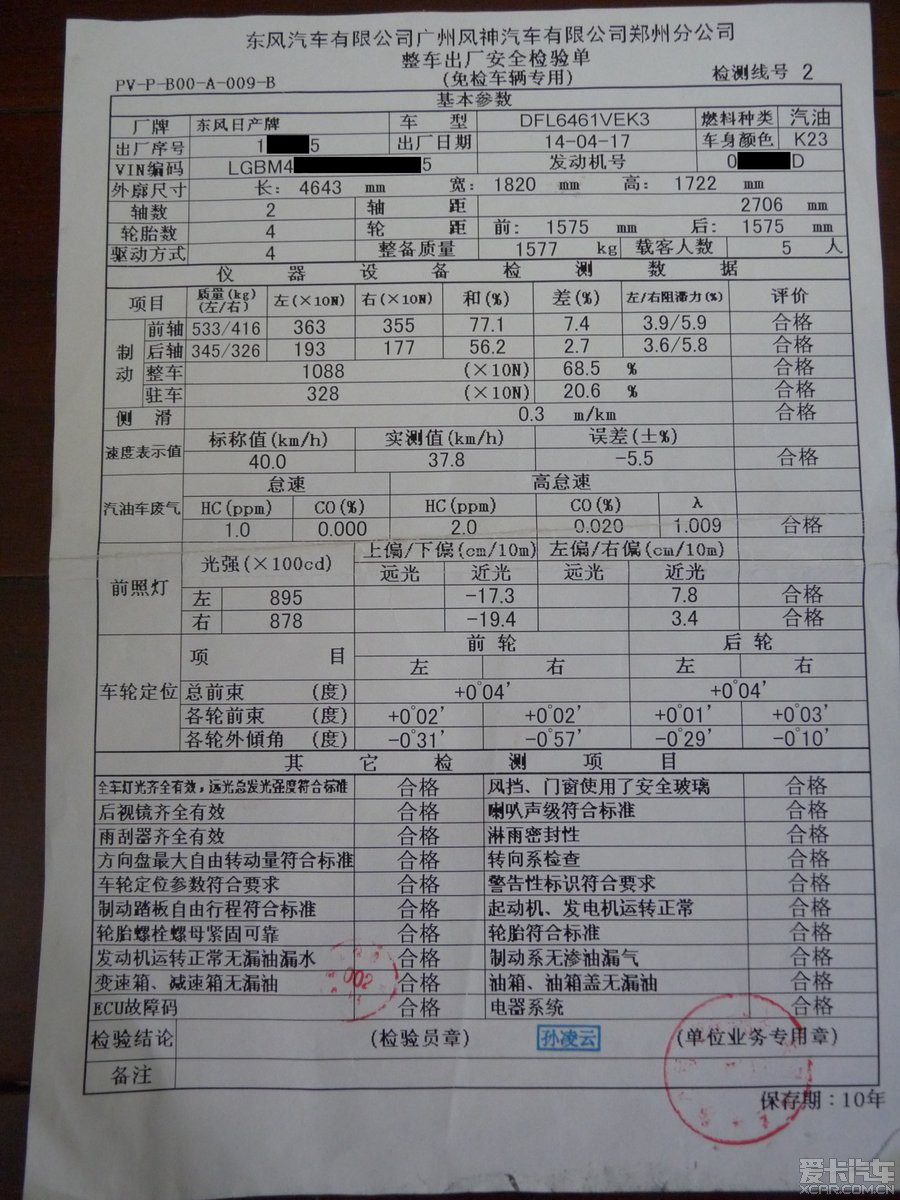 东风汽车有限公司广州风神汽车有限公司郑州分公司
整车出厂安全检验单
PV-P-B00-A-009-B (免检车辆专用) 检测线号 2
基本参数
厂牌 东风日产牌 车型 DFL6461VEK3 燃料种类 汽油
出厂序号 1 5 出厂日期 14-04-17 车身颜色 K23
VIN编码 LGBM4 5 发动机号 0 D
外廓尺寸 长: 4643 mm 宽: 1820 mm 高: 1722 mm
轴数 2 轴距 2706 mm
轮胎数 4 轮距 前: 1575 mm 后: 1575 mm
驱动方式 4 整备质量 1577 kg 载客人数 5 人
仪器设备检测数据
项目 质量(kg)(左/右) 左(×10N) 右(×10N) 和(%) 差(%) 左/右阻滞力(%) 评价
制动 前轴 533/416 363 355 77.1 7.4 3.9/5.9 合格
后轴 345/326 193 177 56.2 2.7 3.6/5.8 合格
整车 1088 (×10N) 68.5 % 合格
驻车 328 (×10N) 20.6 % 合格
侧滑 0.3 m/km 合格
速度表示值 标称值(km/h) 实测值(km/h) 误差(±%)
40.0 37.8 -5.5 合格
汽油车废气 怠速 高怠速
HC(ppm) CO(%) HC(ppm) CO(%) λ
1.0 0.000 2.0 0.020 1.009 合格
前照灯 光强(×100cd) 上偏/下偏(cm/10m) 左偏/右偏(cm/10m)
远光 近光 远光 近光
左 895 -17.3 7.8 合格
右 878 -19.4 3.4 合格
车轮定位 项目 前轮 后轮
左 右 左 右
总前束 (度) +0°04' +0°04'
各轮前束 (度) +0°02' +0°02' +0°01' +0°03'
各轮外倾角 (度) -0°31' -0°57' -0°29' -0°10'
其它检测项目
全车灯光齐全有效,远光总发光强度符合标准 合格 风挡、门窗使用了安全玻璃 合格
后视镜齐全有效 合格 喇叭声级符合标准 合格
雨刮器齐全有效 合格 淋雨密封性 合格
方向盘最大自由转动量符合标准 合格 转向系检查 合格
车轮定位参数符合要求 合格 警告性标识符合要求 合格
制动踏板自由行程符合标准 合格 起动机、发电机运转正常 合格
轮胎螺栓螺母紧固可靠 合格 轮胎符合标准 合格
发动机运转正常无漏油漏水 合格 制动系无渗油漏气 合格
变速箱、减速箱无漏油 合格 油箱、油箱盖无漏油 合格
ECU故障码 合格 电器系统 合格
002
检验结论 (检验员章) 孙凌云 (单位业务专用章)
备注
保存期:10年
爱卡汽车
XCAR.COM.CN